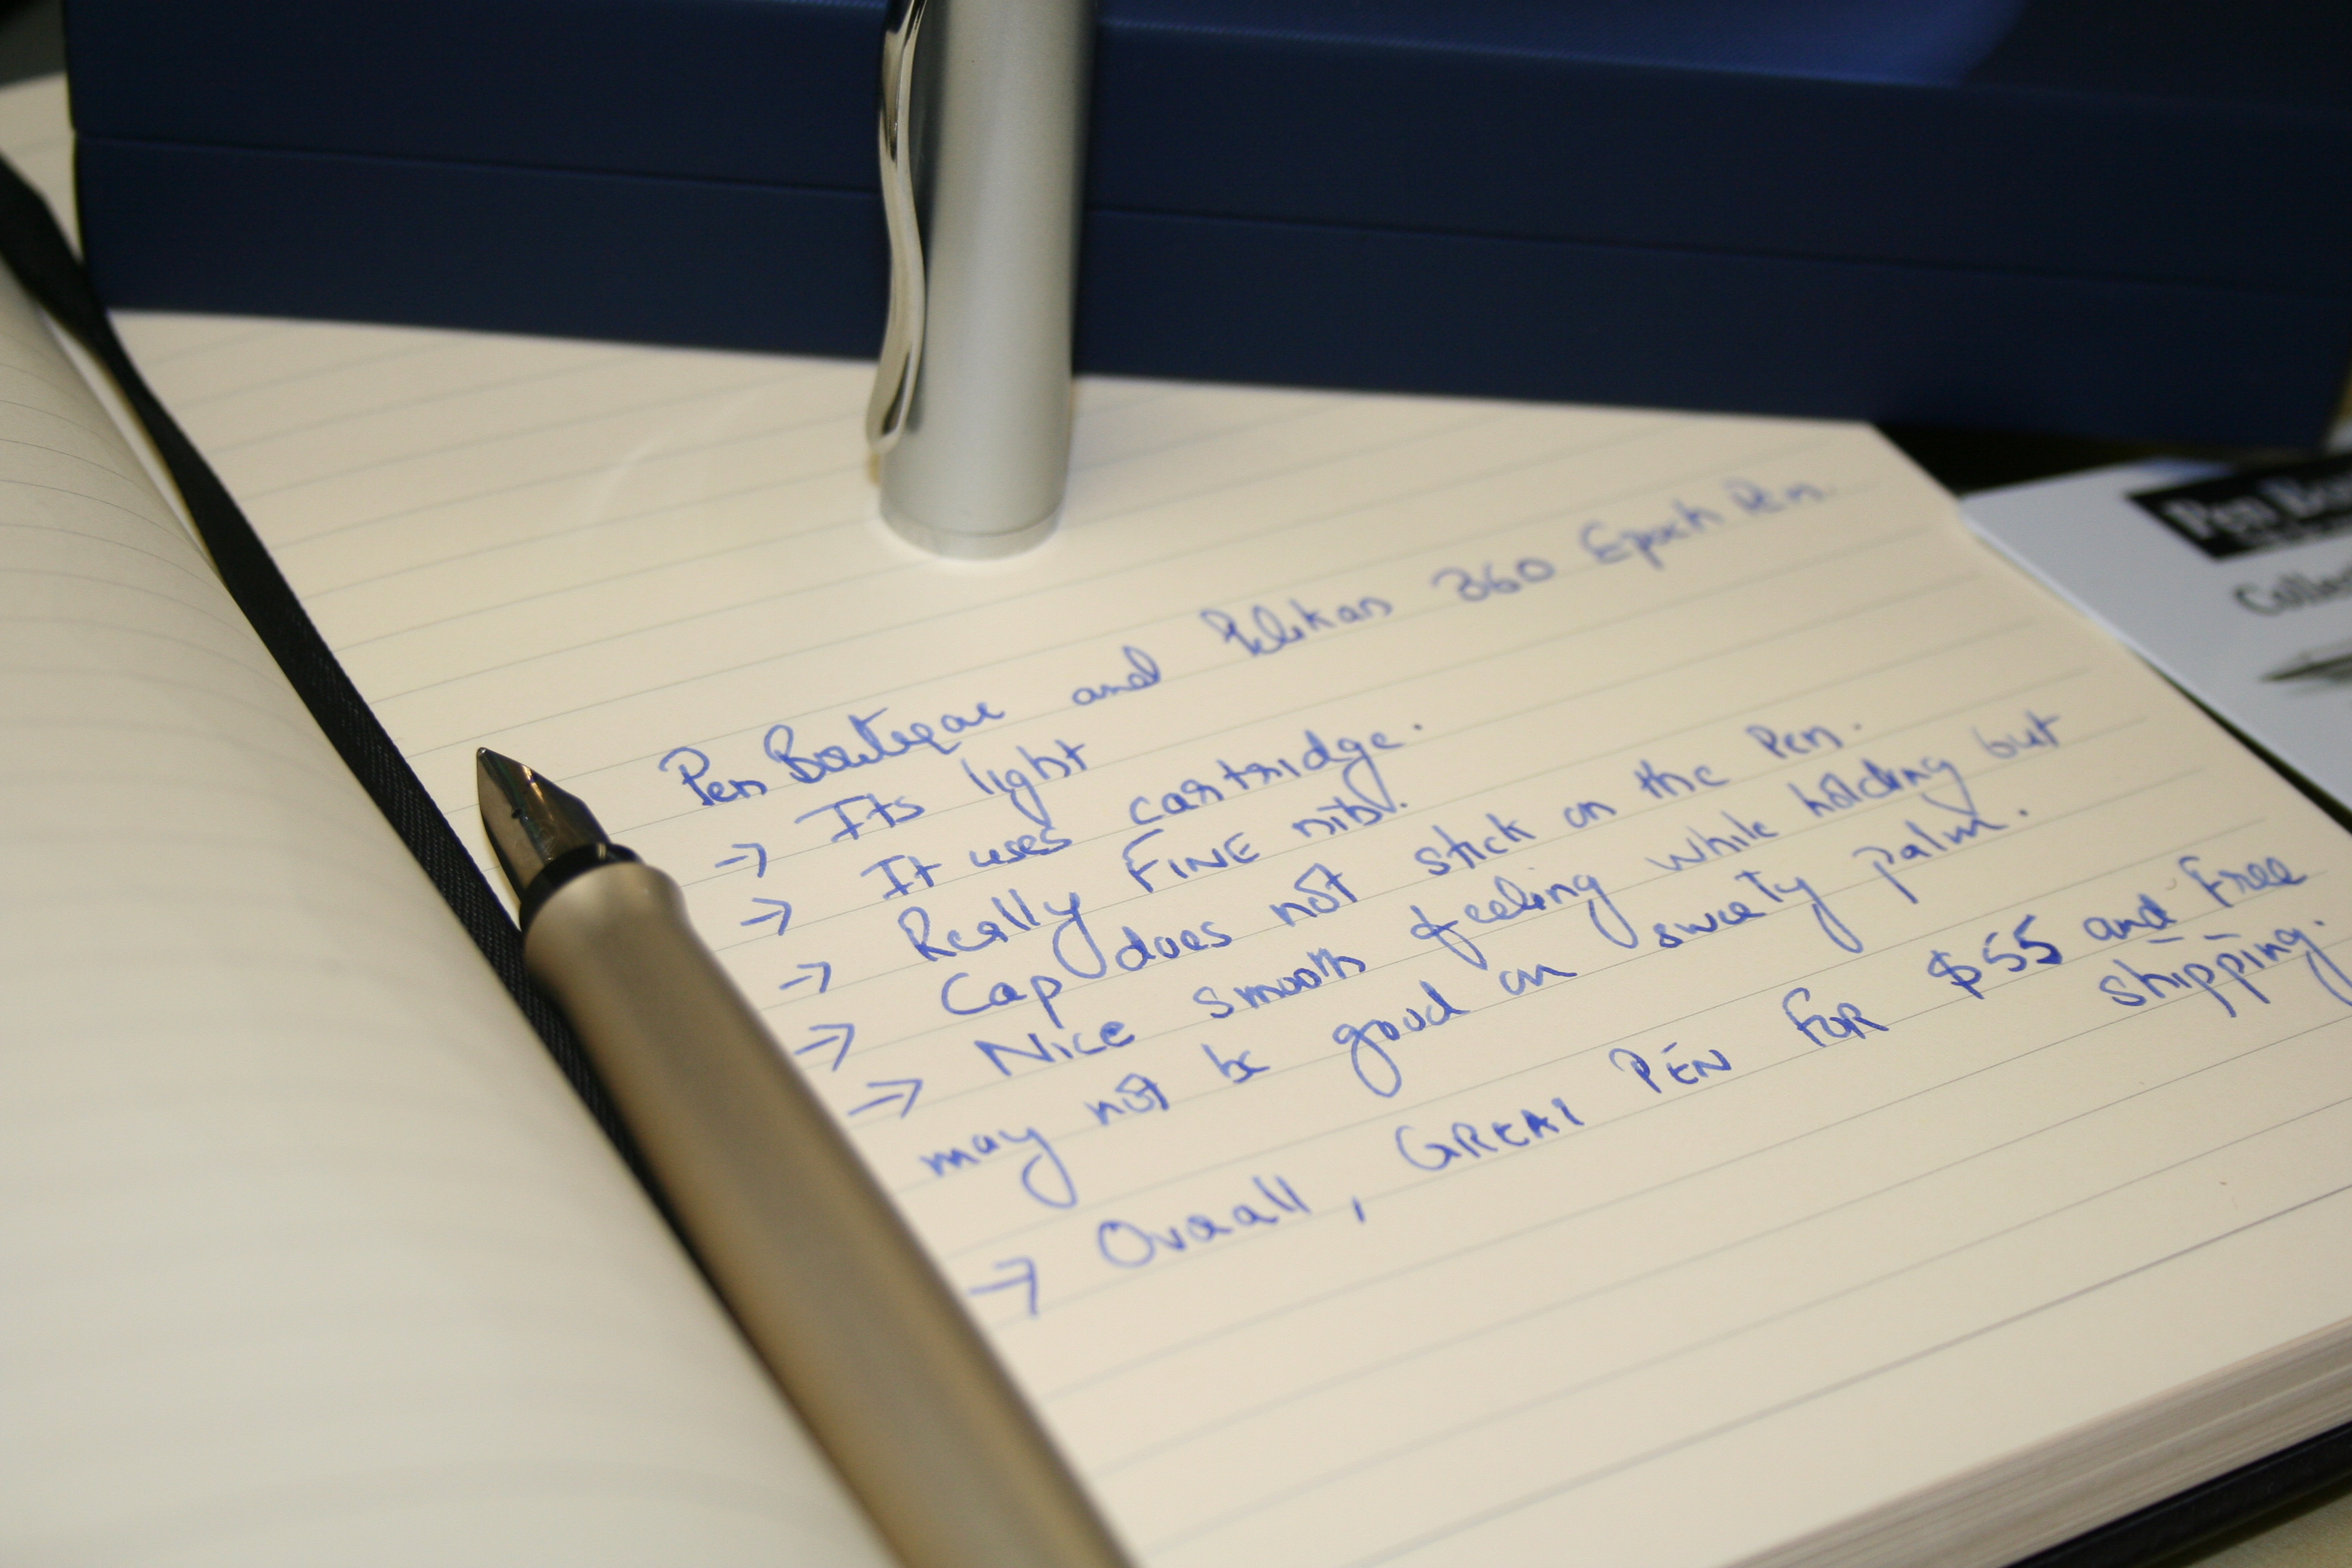 Pen Boutique and Pelikan 360 Epoch Pen.
→ Its light
→ It uses cartridge.
→ Really FINE nib.
→ Cap does not stick on the Pen.
→ Nice smooth feeling while holding but
may not be good on sweaty palm.
→ Overall, GREAT PEN FOR $55 and Free
shipping.
Pen